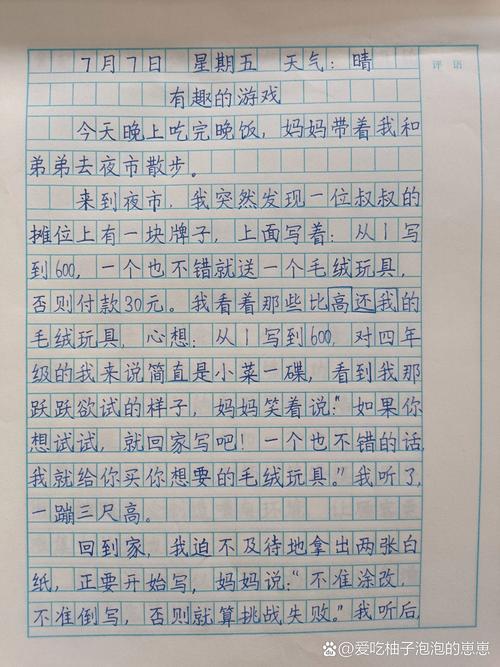 7月7日 星期五 天气：晴
评语
有趣的游戏
今天晚上吃完晚饭，妈妈带着我和
弟弟去夜市散步。
来到夜市，我突然发现一位叔叔的
摊位上有一块牌子，上面写着：从1写
到600，一个也不错就送一个毛绒玩具，
否则付款30元。我看着那些比高还我的
毛绒玩具，心想：从1写到600，对四年
级的我来说简直是小菜一碟，看到我那
跃跃欲试的样子，妈妈笑着说："如果你
想试试，就回家写吧！一个也不错的话，
我就给你买你想要的毛绒玩具。"我听了，
一蹦三尺高。
回到家，我迫不及待地拿出两张白
纸，正要开始写，妈妈说："不准涂改，
不准倒写，否则就算挑战失败。"我听后，
@爱吃柚子泡泡的崽崽